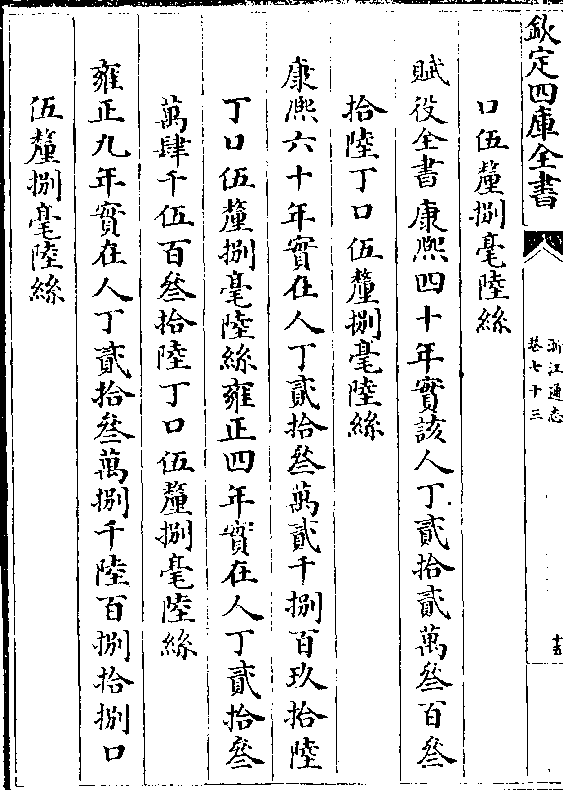 欽定四庫全書
浙江通志
卷七十三
口伍釐捌毫陸絲
賦役全書康熙四十年實該人丁貳拾貳萬叁百叁
拾陸丁口伍釐捌毫陸絲
康熙六十年實在人丁貳拾叁萬貳千捌百玖拾陸
丁口伍釐捌毫陸絲雍正四年實在人丁貳拾叁
萬肆千伍百叁拾陸丁口伍釐捌毫陸絲
雍正九年實在人丁貳拾叁萬捌千陸百捌拾捌口
伍釐捌毫陸絲